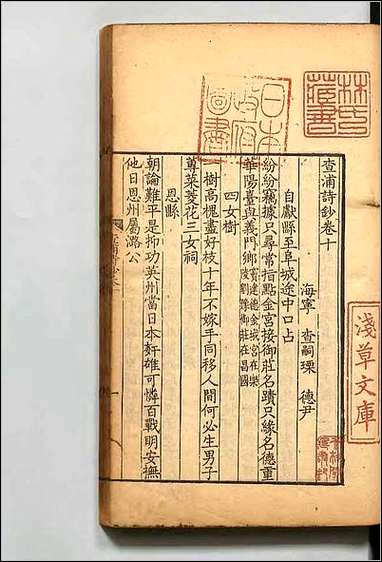 查浦詩鈔卷十
海寧 查嗣瑮 德尹
自獻縣至阜城途中口占
紛紛竊據只尋常指點金宮接御莊名蹟只緣名德重
華陽臺與義門鄉竇建德金城宮在樂
陵劉豫御莊在昌國
四女樹
樹高槐盡好枝十年不嫁手同移人間何必生男子
蓴菜菱花三女祠
恩縣
朝論難平是抑功英州當日本奸雄可憐百戰明安撫
他日恩州屬潞公
林氏
藏書
日本
政府
圖書
淺草文庫